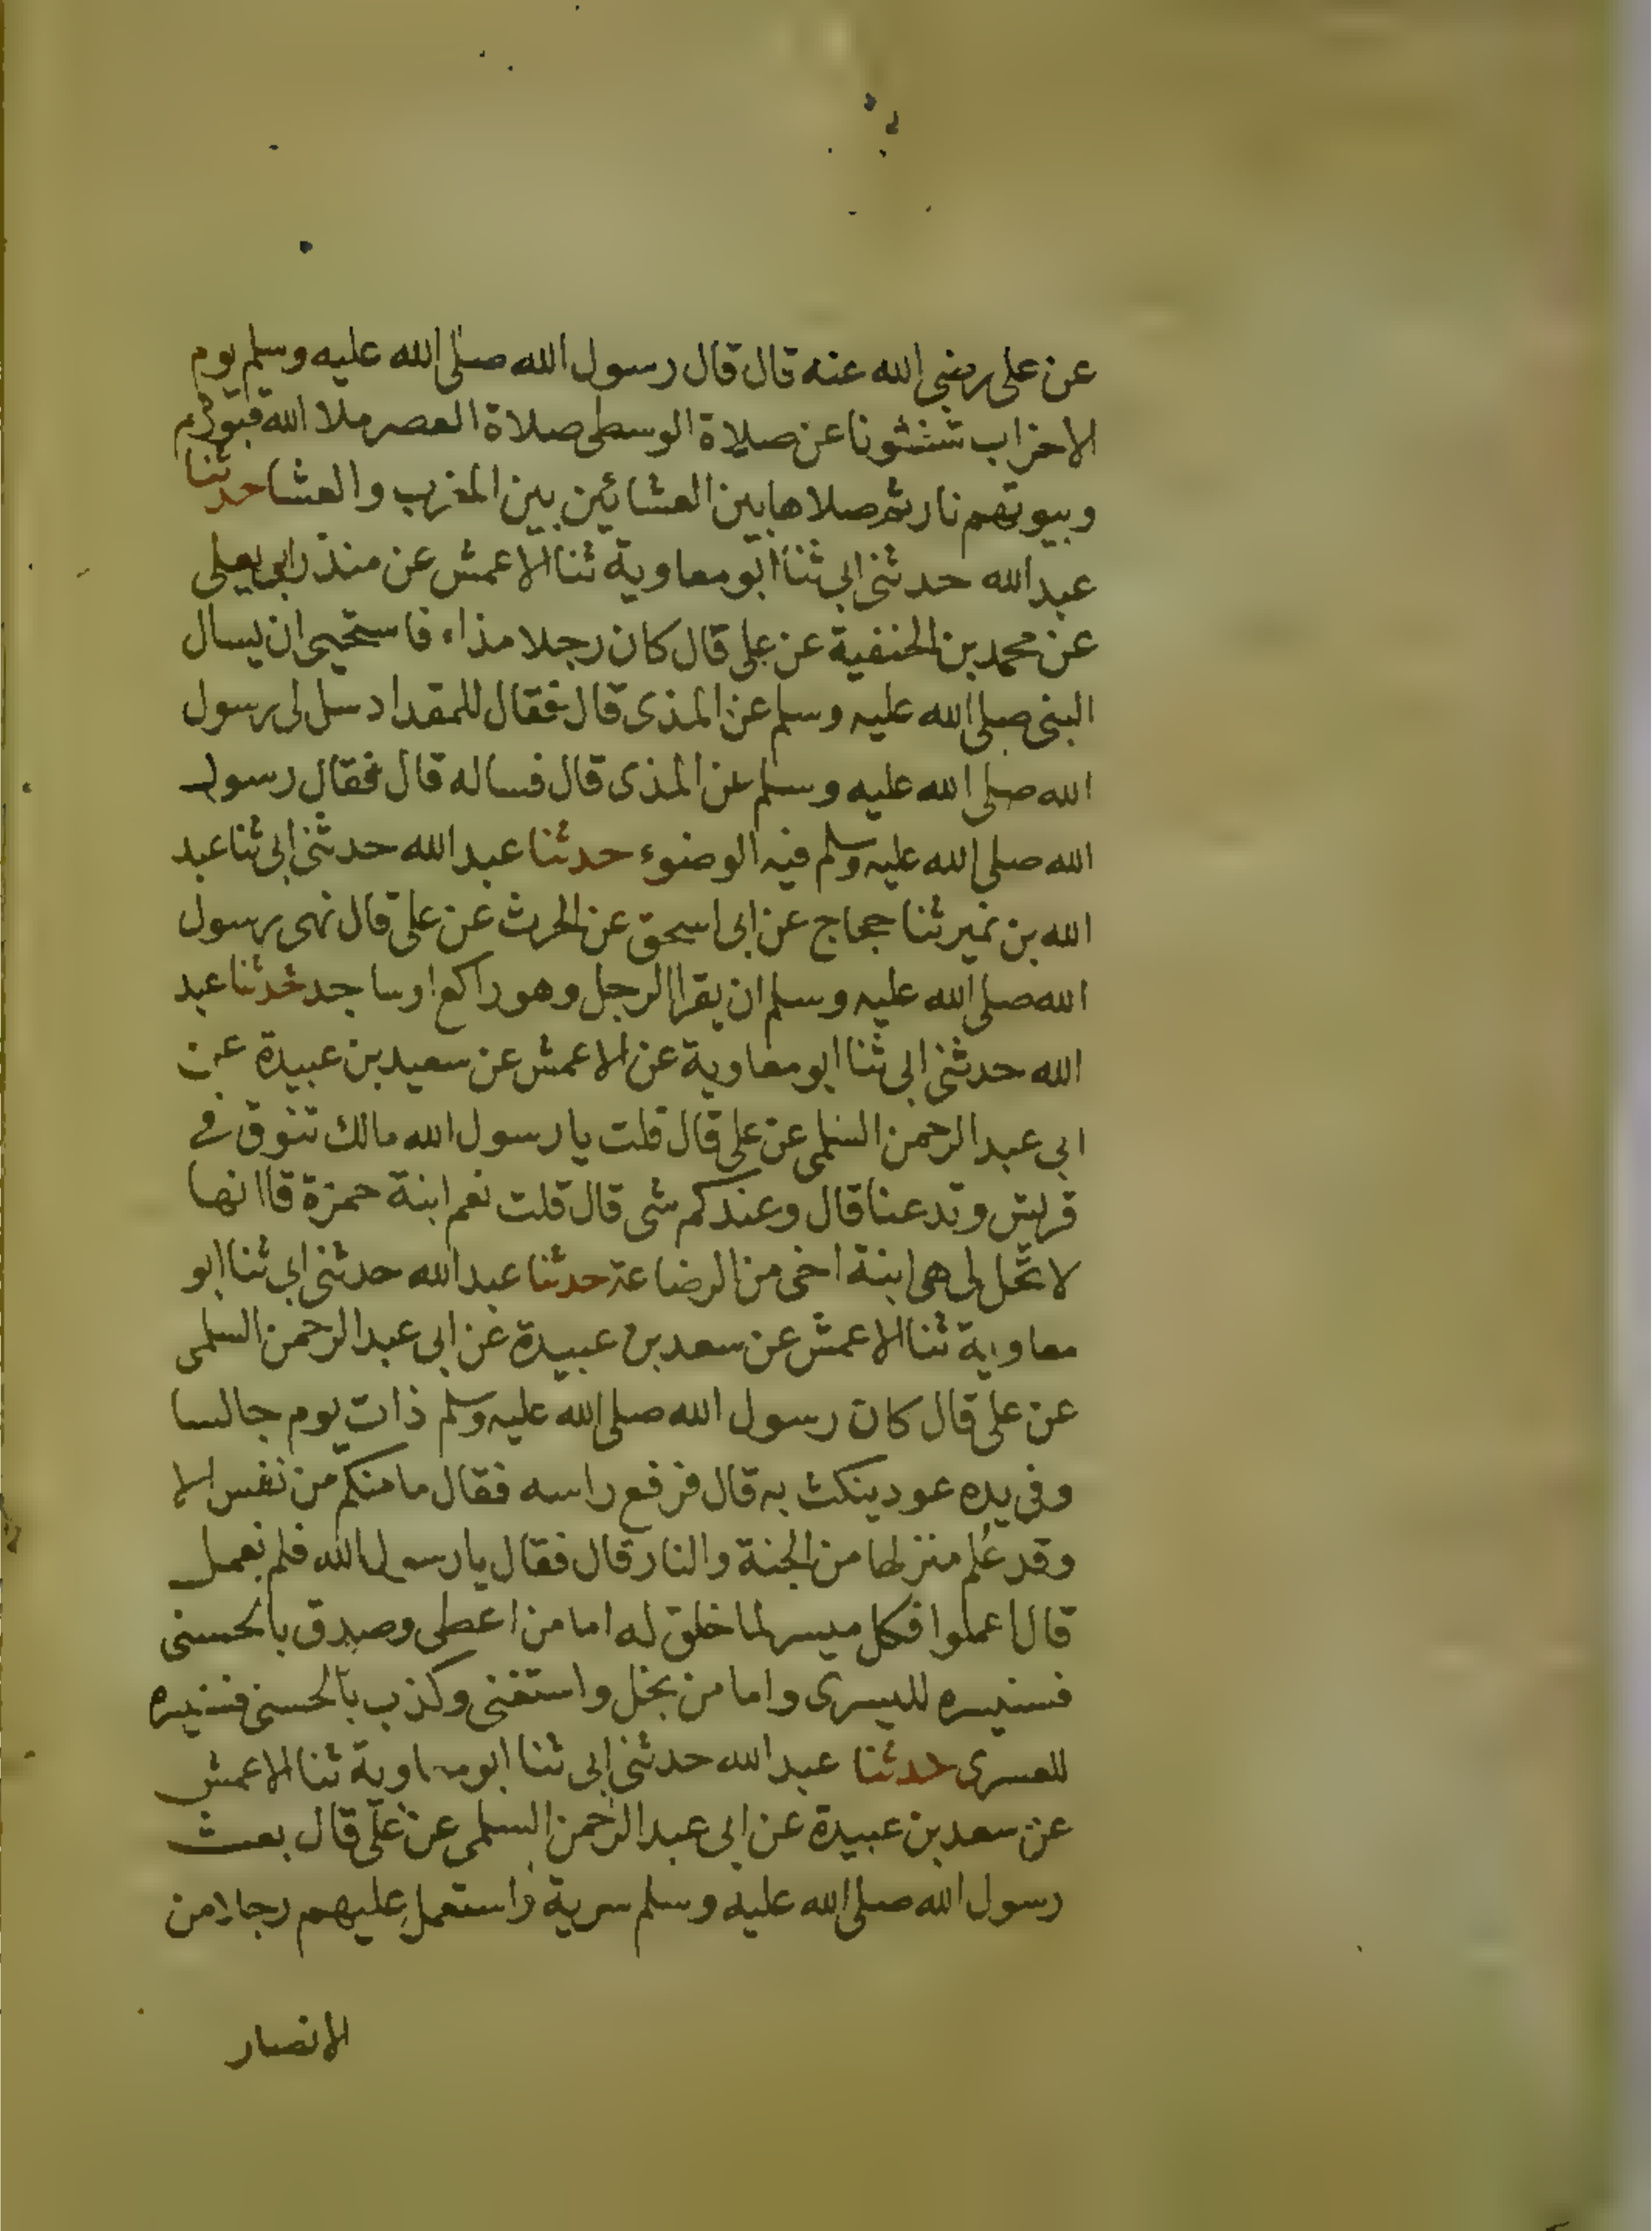 عن على رضى الله عنه قال قال رسول الله صلى الله عليه وسلم يوم
الاحزاب شغلونا عن صلاة الوسطى صلاة العصر ملا الله قبورهم
وبيوتهم نارا ثم صلاها بين العشائين بين المغرب والعشا حدثنا
عبد الله حدثنى ابى ثنا ابو معاوية ثنا الاعمش عن منذر ابى يعلى
عن محمد بن الحنفية عن على قال كان رجلا مذاء فاستحيى ان يسال
النبى صلى الله عليه وسلم عن المذى قال فقال للمقداد سل لى رسول
الله صلى الله عليه وسلم عن المذى قال فساله قال فقال رسول
الله صلى الله عليه وسلم فيه الوضوء حدثنا عبد الله حدثنى ابى ثنا عبد
الله بن نمير ثنا حجاج عن ابى اسحق عن الحرث عن على قال نهى رسول
الله صلى الله عليه وسلم ان يقرا الرجل وهو راكع او ساجد حدثنا عبد
الله حدثنى ابى ثنا ابو معاوية عن الاعمش عن سعيد بن عبيدة عن
ابى عبد الرحمن السلمى عن على قال قلت يا رسول الله مالك تنوق فى
قريش وتدعنا قال وعندكم شى قال قلت نعم ابنة حمزة قال انها
لا تحل لى هى ابنة اخى من الرضاعة حدثنا عبد الله حدثنى ابى ثنا ابو
معاوية ثنا الاعمش عن سعد بن عبيدة عن ابى عبد الرحمن السلمى
عن على قال كان رسول الله صلى الله عليه وسلم ذات يوم جالسا
وفى يده عود ينكث به قال فرفع راسه فقال ما منكم من نفس الا
وقد علم منزلها من الجنة والنار قال فقال يا رسول الله فلم نعمل
قال اعملوا فكل ميسر لما خلق له اما من اعطى وصدق بالحسنى
فسنيسره لليسرى واما من بخل واستغنى وكذب بالحسنى فسنيسره
للعسرى حدثنا عبد الله حدثنى ابى ثنا ابو معاوية ثنا الاعمش
عن سعد بن عبيدة عن ابى عبد الرحمن السلمى عن على قال بعث
رسول الله صلى الله عليه وسلم سرية واستعمل عليهم رجلا من
الانصار